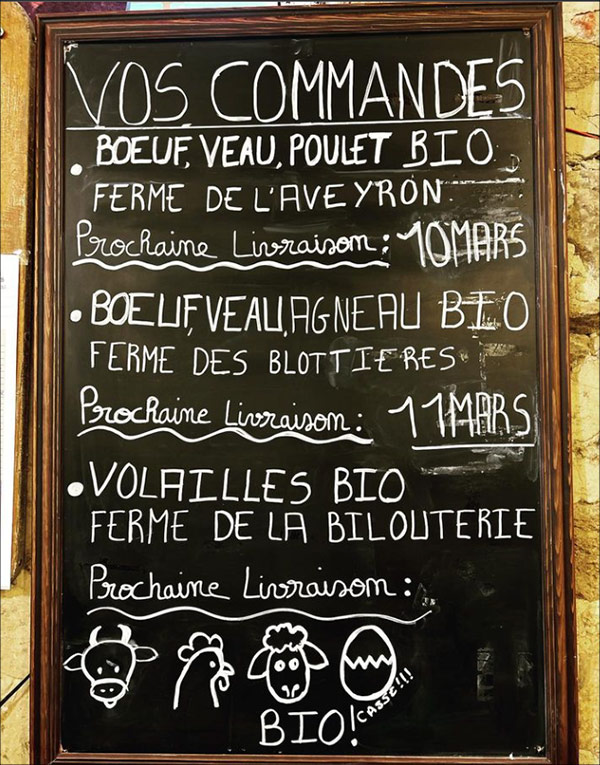 VOS COMMANDES
• BOEUF, VEAU, POULET BIO
FERME DE L'AVEYRON
Prochaine Livraison : 10 MARS
• BOEUF, VEAU, AGNEAU BIO
FERME DES BLOTTIERES
Prochaine Livraison : 11 MARS
• VOLAILLES BIO
FERME DE LA BILOUTERIE
Prochaine Livraison :
CASSÉ!!!
BIO!